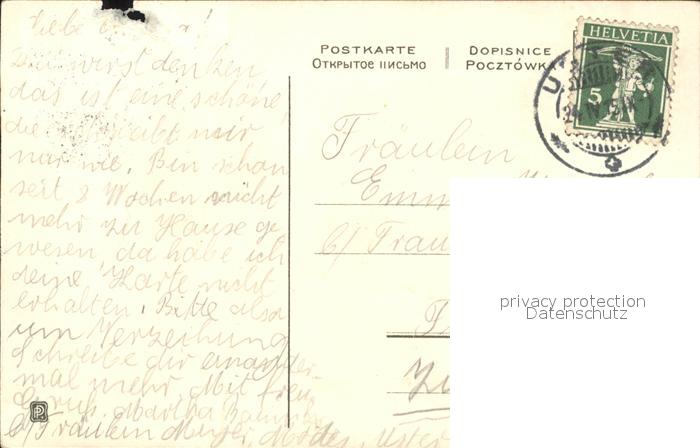 Liebe
Du wirst denken
das ist eine schöne
die schreibt mir
nur nie. Bin schon
seit 8 Wochen nicht
mehr zu Hause ge
wesen, da habe ich
deine Karte nicht
erhalten. Bitte also
um Verzeihung
Schreibe dir ein ander-
mal mehr. Mit freu
Gruß. Martha
C/ Fräulein Meyer, Modes, Uster
POSTKARTE
DOPISNICE
Открытое письмо
POCZTÓWKA
HELVETIA
5
Fräulein
Emm
C/ Frau
privacy protection
Datenschutz